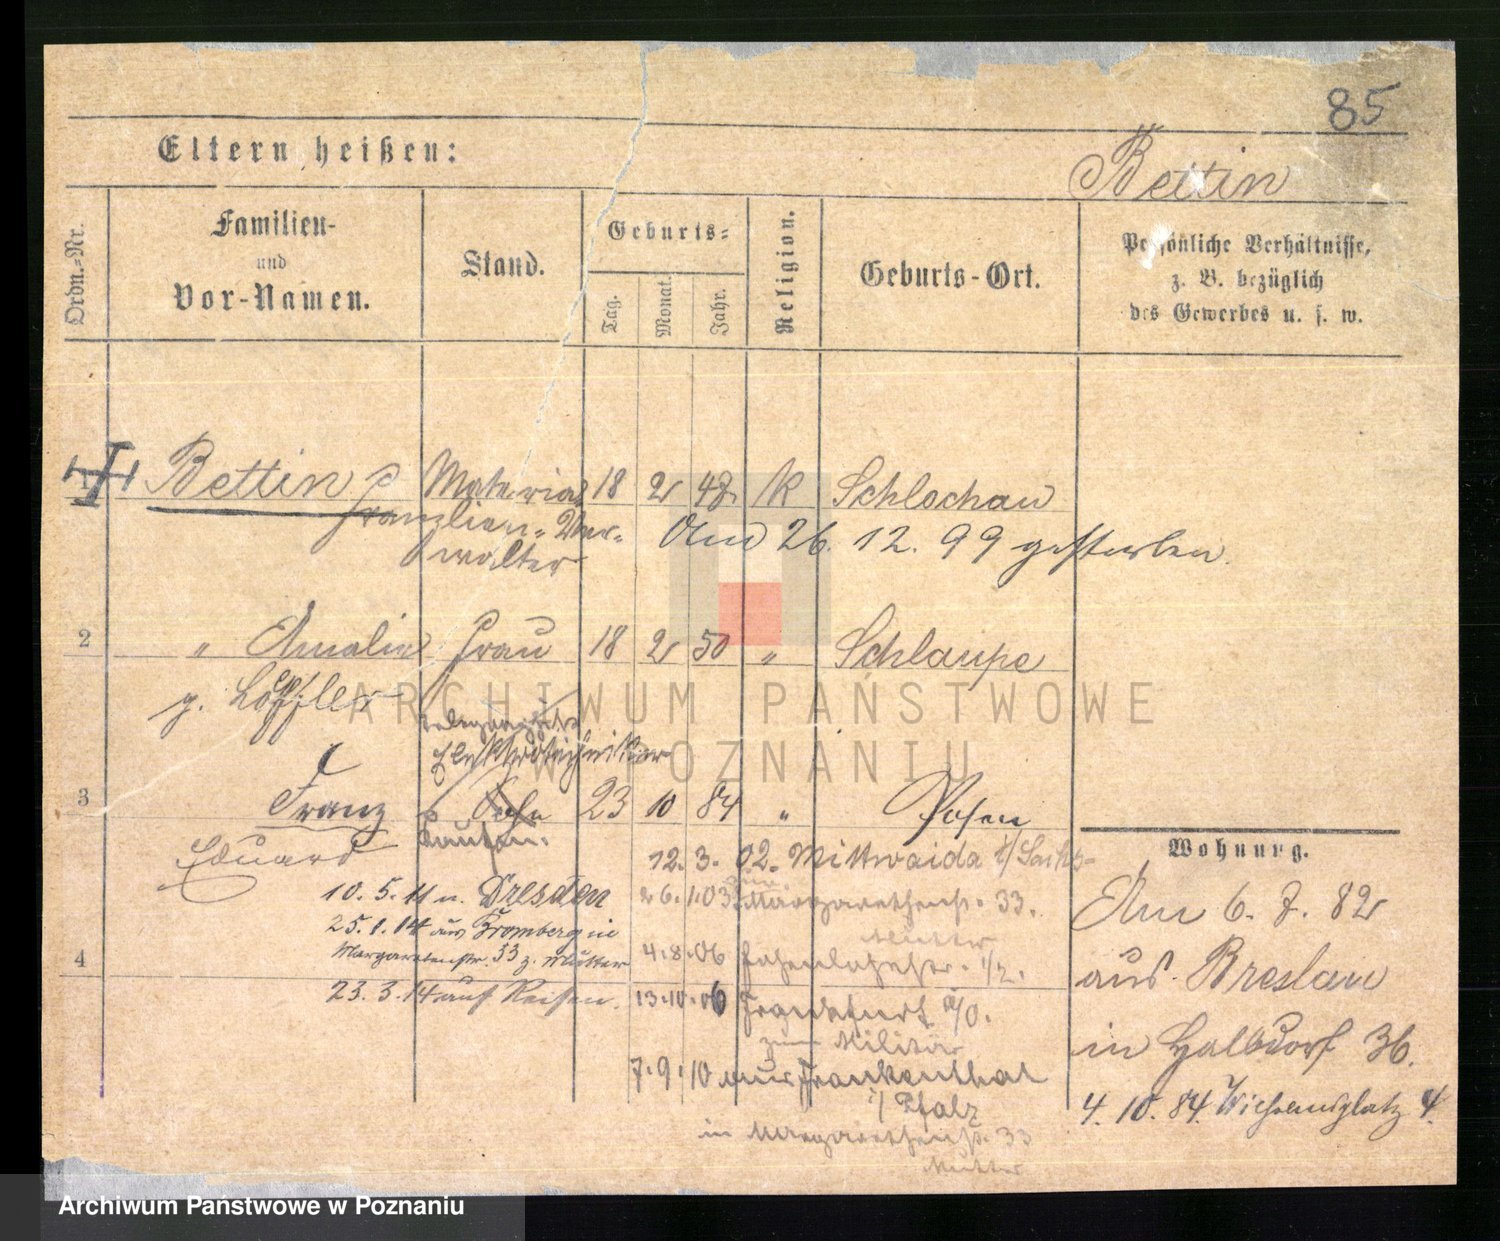 85
Eltern heißen:
Bettin
Ordn.-Nr.
Familien-
und
Vor-Namen.
Stand.
Geburts-
Tag.
Monat.
Jahr.
Religion.
Geburts-Ort.
Persönliche Verhältnisse,
z. B. bezüglich
des Gewerbes u. s. w.
1 Bettin Material 18 2 48 k Schlochau
Franz Ver-
walter
Am 26. 12. 99 gestorben.
2 " Amalie Frau 18 2 50 " Schlaupe
g. Löffler
Elektrotechniker
3 Franz Sohn 23 10 84 " Posen
Eduard
12. 3. 02. Mittwaida i/Sachs-
10. 5. 11 n. Dresden
26. 1. 03. Margarethenst. 33.
Mutter
25. 1. 14 aus Bromberg in
Margaretenstr. 33 z. Mutter
4 4. 8. 06 1/2.
23. 3. 14 auf Reisen.
13. 10. 06 Frankfurt a/O.
zum Militär
7. 9. 10 aus Frankenthal
i/ Pfalz
in Margarethenst. 33
Mutter
Wohnung.
Am 6. 7. 82
aus Breslau
in Halbdorf 36.
4. 10. 84. Wilhelmsplatz 4.
ARCHIWUM PAŃSTWOWE
W POZNANIU
Archiwum Państwowe w Poznaniu